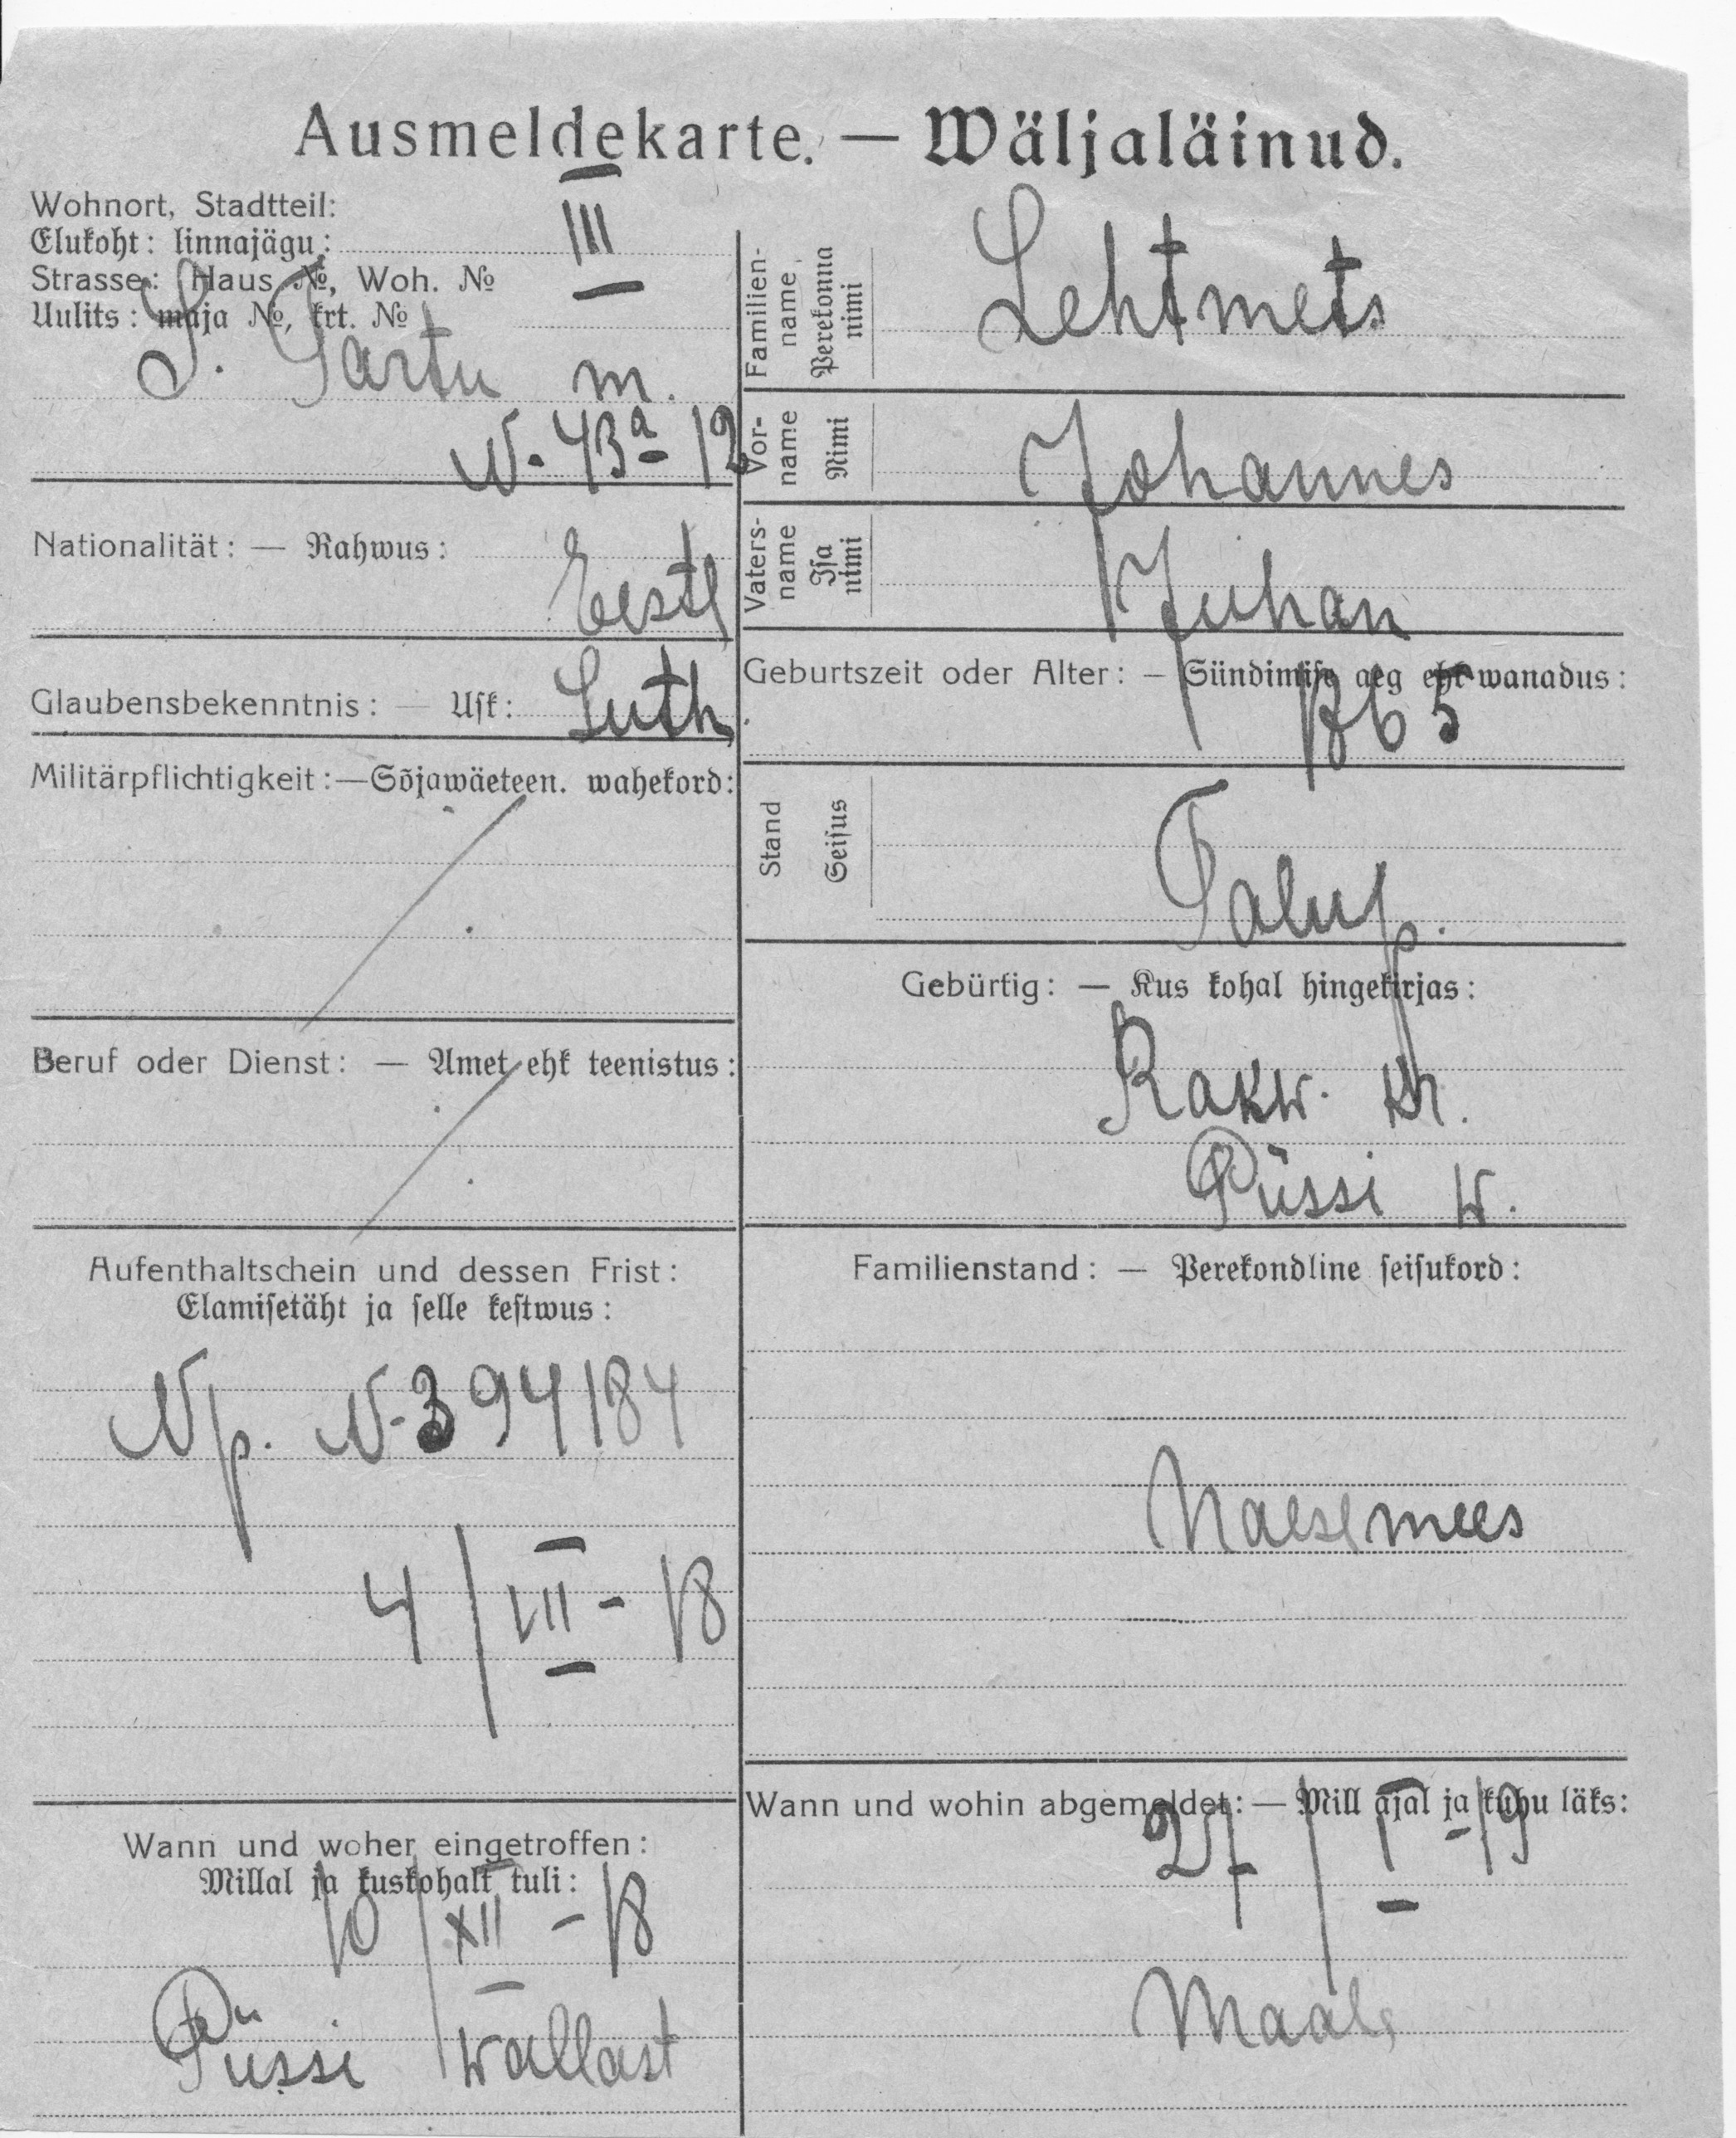 Ausmeldekarte. — Wäljaläinud.
Wohnort, Stadtteil:
Elukoht: linnajägu: III
Strasse: Haus №, Woh. №
Uulits: maja №, krt. №
S. Tartu m.
N. 43a - 12
Nationalität: — Rahwus: Eestl
Glaubensbekenntnis: — Usk: Luth
Militärpflichtigkeit: — Sõjawäeteen. wahekord:
Beruf oder Dienst: — Amet ehk teenistus:
Aufenthaltschein und dessen Frist:
Elamisetäht ja selle kestwus:
Np. N- 394184
4 / VII - 18
Wann und woher eingetroffen:
Millal ja kuskohalt tuli:
10 / XII - 18
Püssi wallast
Familien-name Perekonna nimi Lehtmets
Vor-name Nimi Johannes
Vaters-name Isa nimi Juhan
Geburtszeit oder Alter: — Sündimise aeg ehk wanadus:
1865
Stand Seisus Talup.
Gebürtig: — Kus kohal hingekirjas:
Rakw. kr.
Püssi w.
Familienstand: — Perekondline seisukord:
Naesemees
Wann und wohin abgemeldet: — Mill ajal ja kuhu läks:
27 / I - 19
Maale